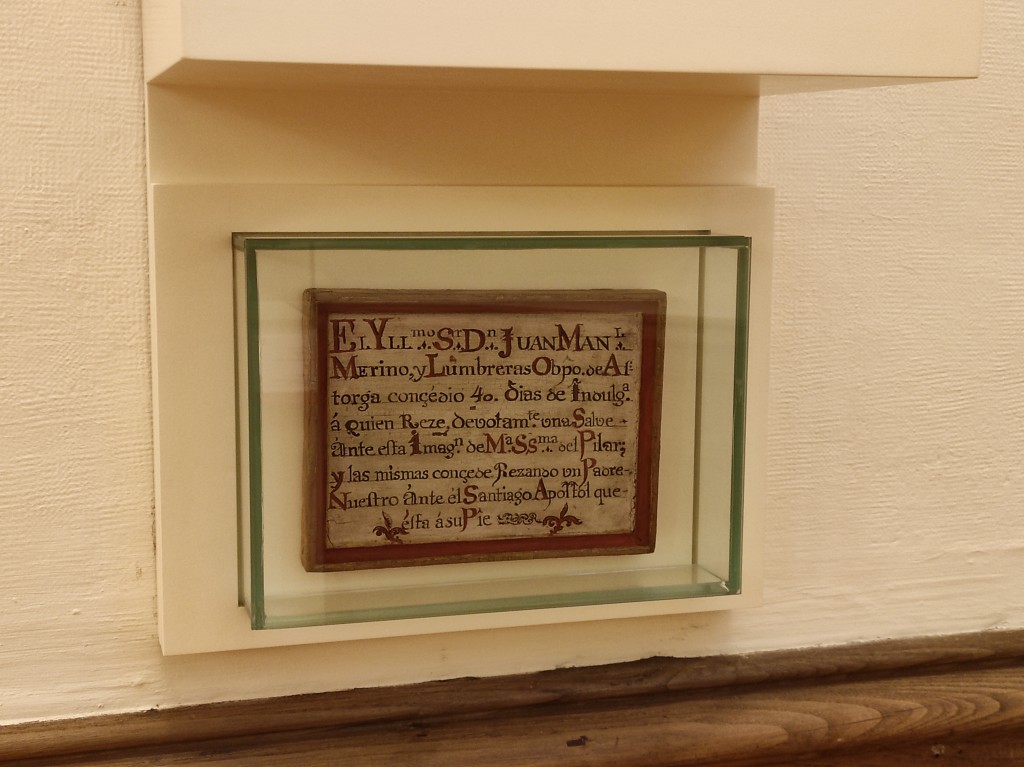 El Yll.mo Sr. Dn. Juan Man.l
Merino, y Lumbreras Obpo. de Aſ-
torga conçedio 40. Dias de Indulg.a
á quien Reze, devotam.te una Salve
ánte eſta Imag.n de M.a SS.ma del Pilar;
y las mismas conçede Rezando un Padre-
Nueſtro ánte él Santiago Apoſtol que-
éſta á su Pie